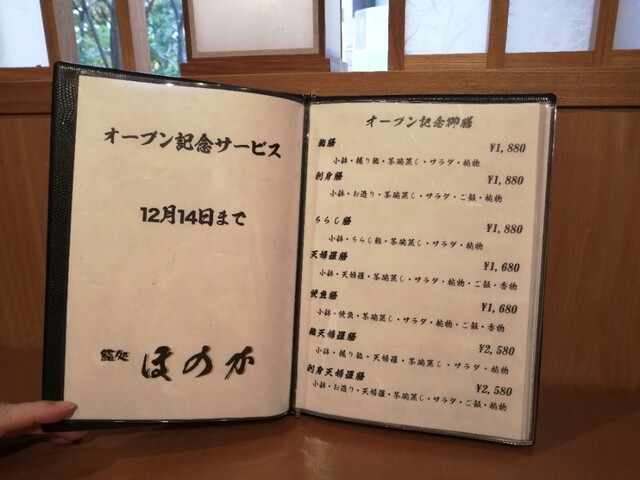 オープン記念サービス
12月14日まで
鮨処 ほのか
オープン記念御膳
鮨膳 ¥1,880
小鉢・握り鮨・茶碗蒸し・サラダ・椀物
刺身膳 ¥1,880
小鉢・お造り・茶碗蒸し・サラダ・ご飯・椀物
ちらし膳 ¥1,880
小鉢・ちらし鮨・茶碗蒸し・サラダ・椀物
天婦羅膳 ¥1,680
小鉢・天婦羅・茶碗蒸し・サラダ・椀物・ご飯・香物
焼魚膳 ¥1,680
小鉢・焼魚・茶碗蒸し・サラダ・椀物・ご飯・香物
鮨天婦羅膳 ¥2,580
小鉢・握り鮨・天婦羅・茶碗蒸し・サラダ・椀物
刺身天婦羅膳 ¥2,580
小鉢・お造り・天婦羅・茶碗蒸し・サラダ・ご飯・椀物